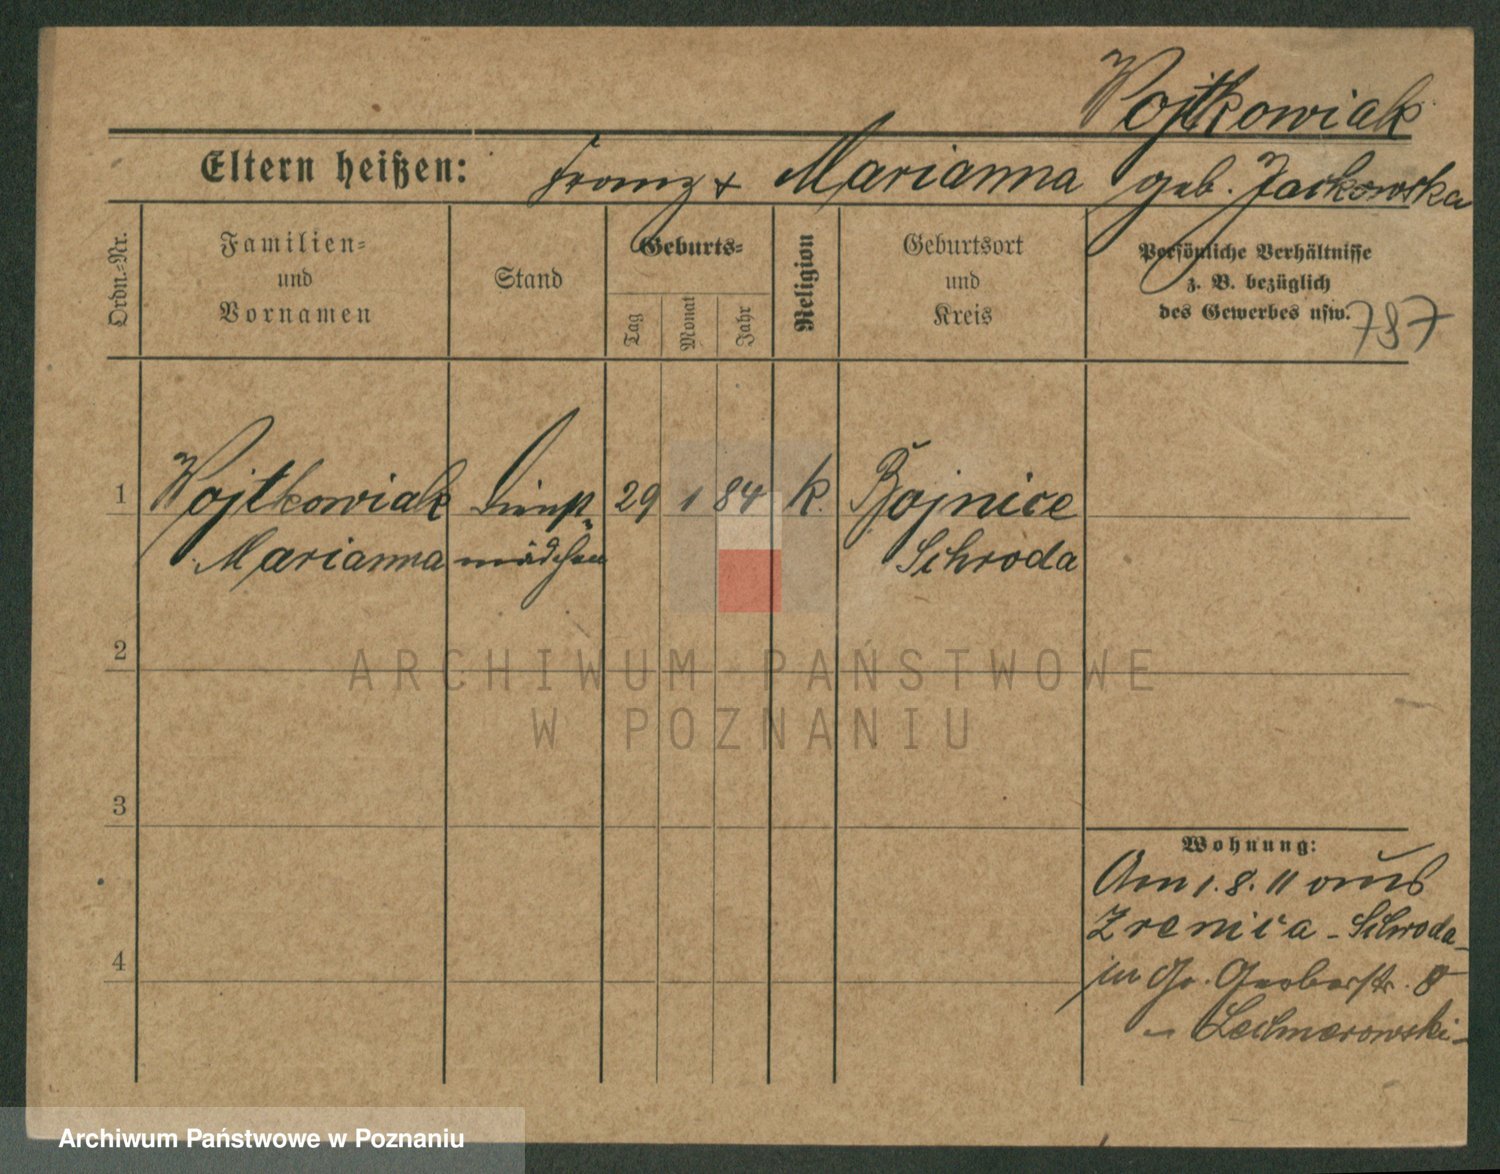 Wojtkowiak
Eltern heißen: Franz + Marianna geb. Jackowska
Ordn.=Nr.
Familien=
und
Vornamen
Stand
Geburts=
Tag
Monat
Jahr
Religion
Geburtsort
und
Kreis
Persönliche Verhältnisse
z. B. bezüglich
des Gewerbes usw.
787
1 Wojtkowiak Dienst= 29 1 84 k. Bojnice
Marianna mädchen Schroda
2
3
4
Wohnung:
Am 1. 8. 11 aus
Zrenica - Schroda -
in Gr. Gerberstr. 8
- Lechnerowski -
ARCHIWUM PAŃSTWOWE
W POZNANIU
Archiwum Państwowe w Poznaniu